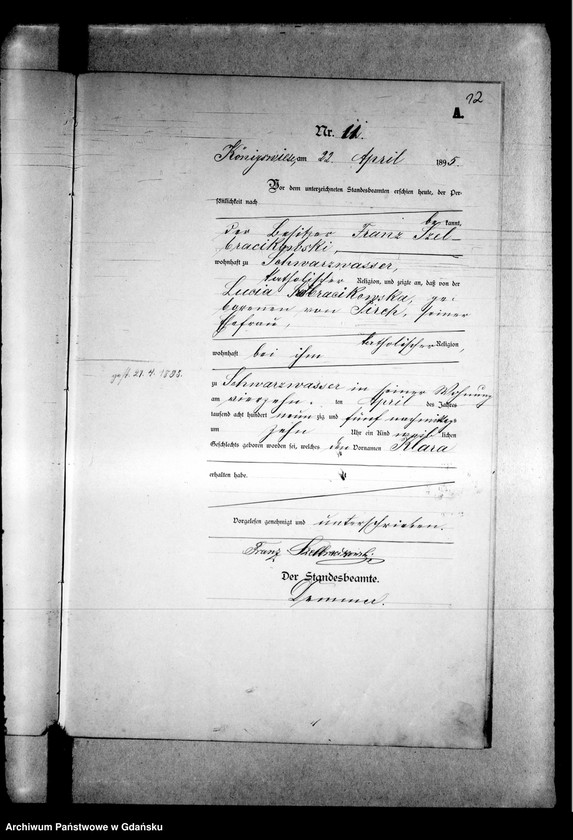 12
A.
Nr. 11.
Königswiese, am 22 April 1895.
Vor dem unterzeichneten Standesbeamten erschien heute, der Per-
sönlichkeit nach
be kannt,
der Besitzer Franz Szel-
bracikowski,
wohnhaft zu Schwarzwasser,
katholischer Religion, und zeigte an, daß von der
Lucia Szelbracikowska, ge-
borenen von Pirch, seiner
Ehefrau,
katholischer Religion,
wohnhaft bei ihm
gest. 21. 4. 1895.
zu Schwarzwasser in seiner Wohnung
am vierzehn ten April des Jahres
tausend acht hundert neun zig und fünf nachmittags
um zehn Uhr ein Kind weib lichen
Geschlechts geboren worden sei, welches den Vornamen Klara
erhalten habe.
Vorgelesen genehmigt und unterschrieben.
Franz Szelbracikowski
Der Standesbeamte.
Demmer.
Archiwum Państwowe w Gdańsku